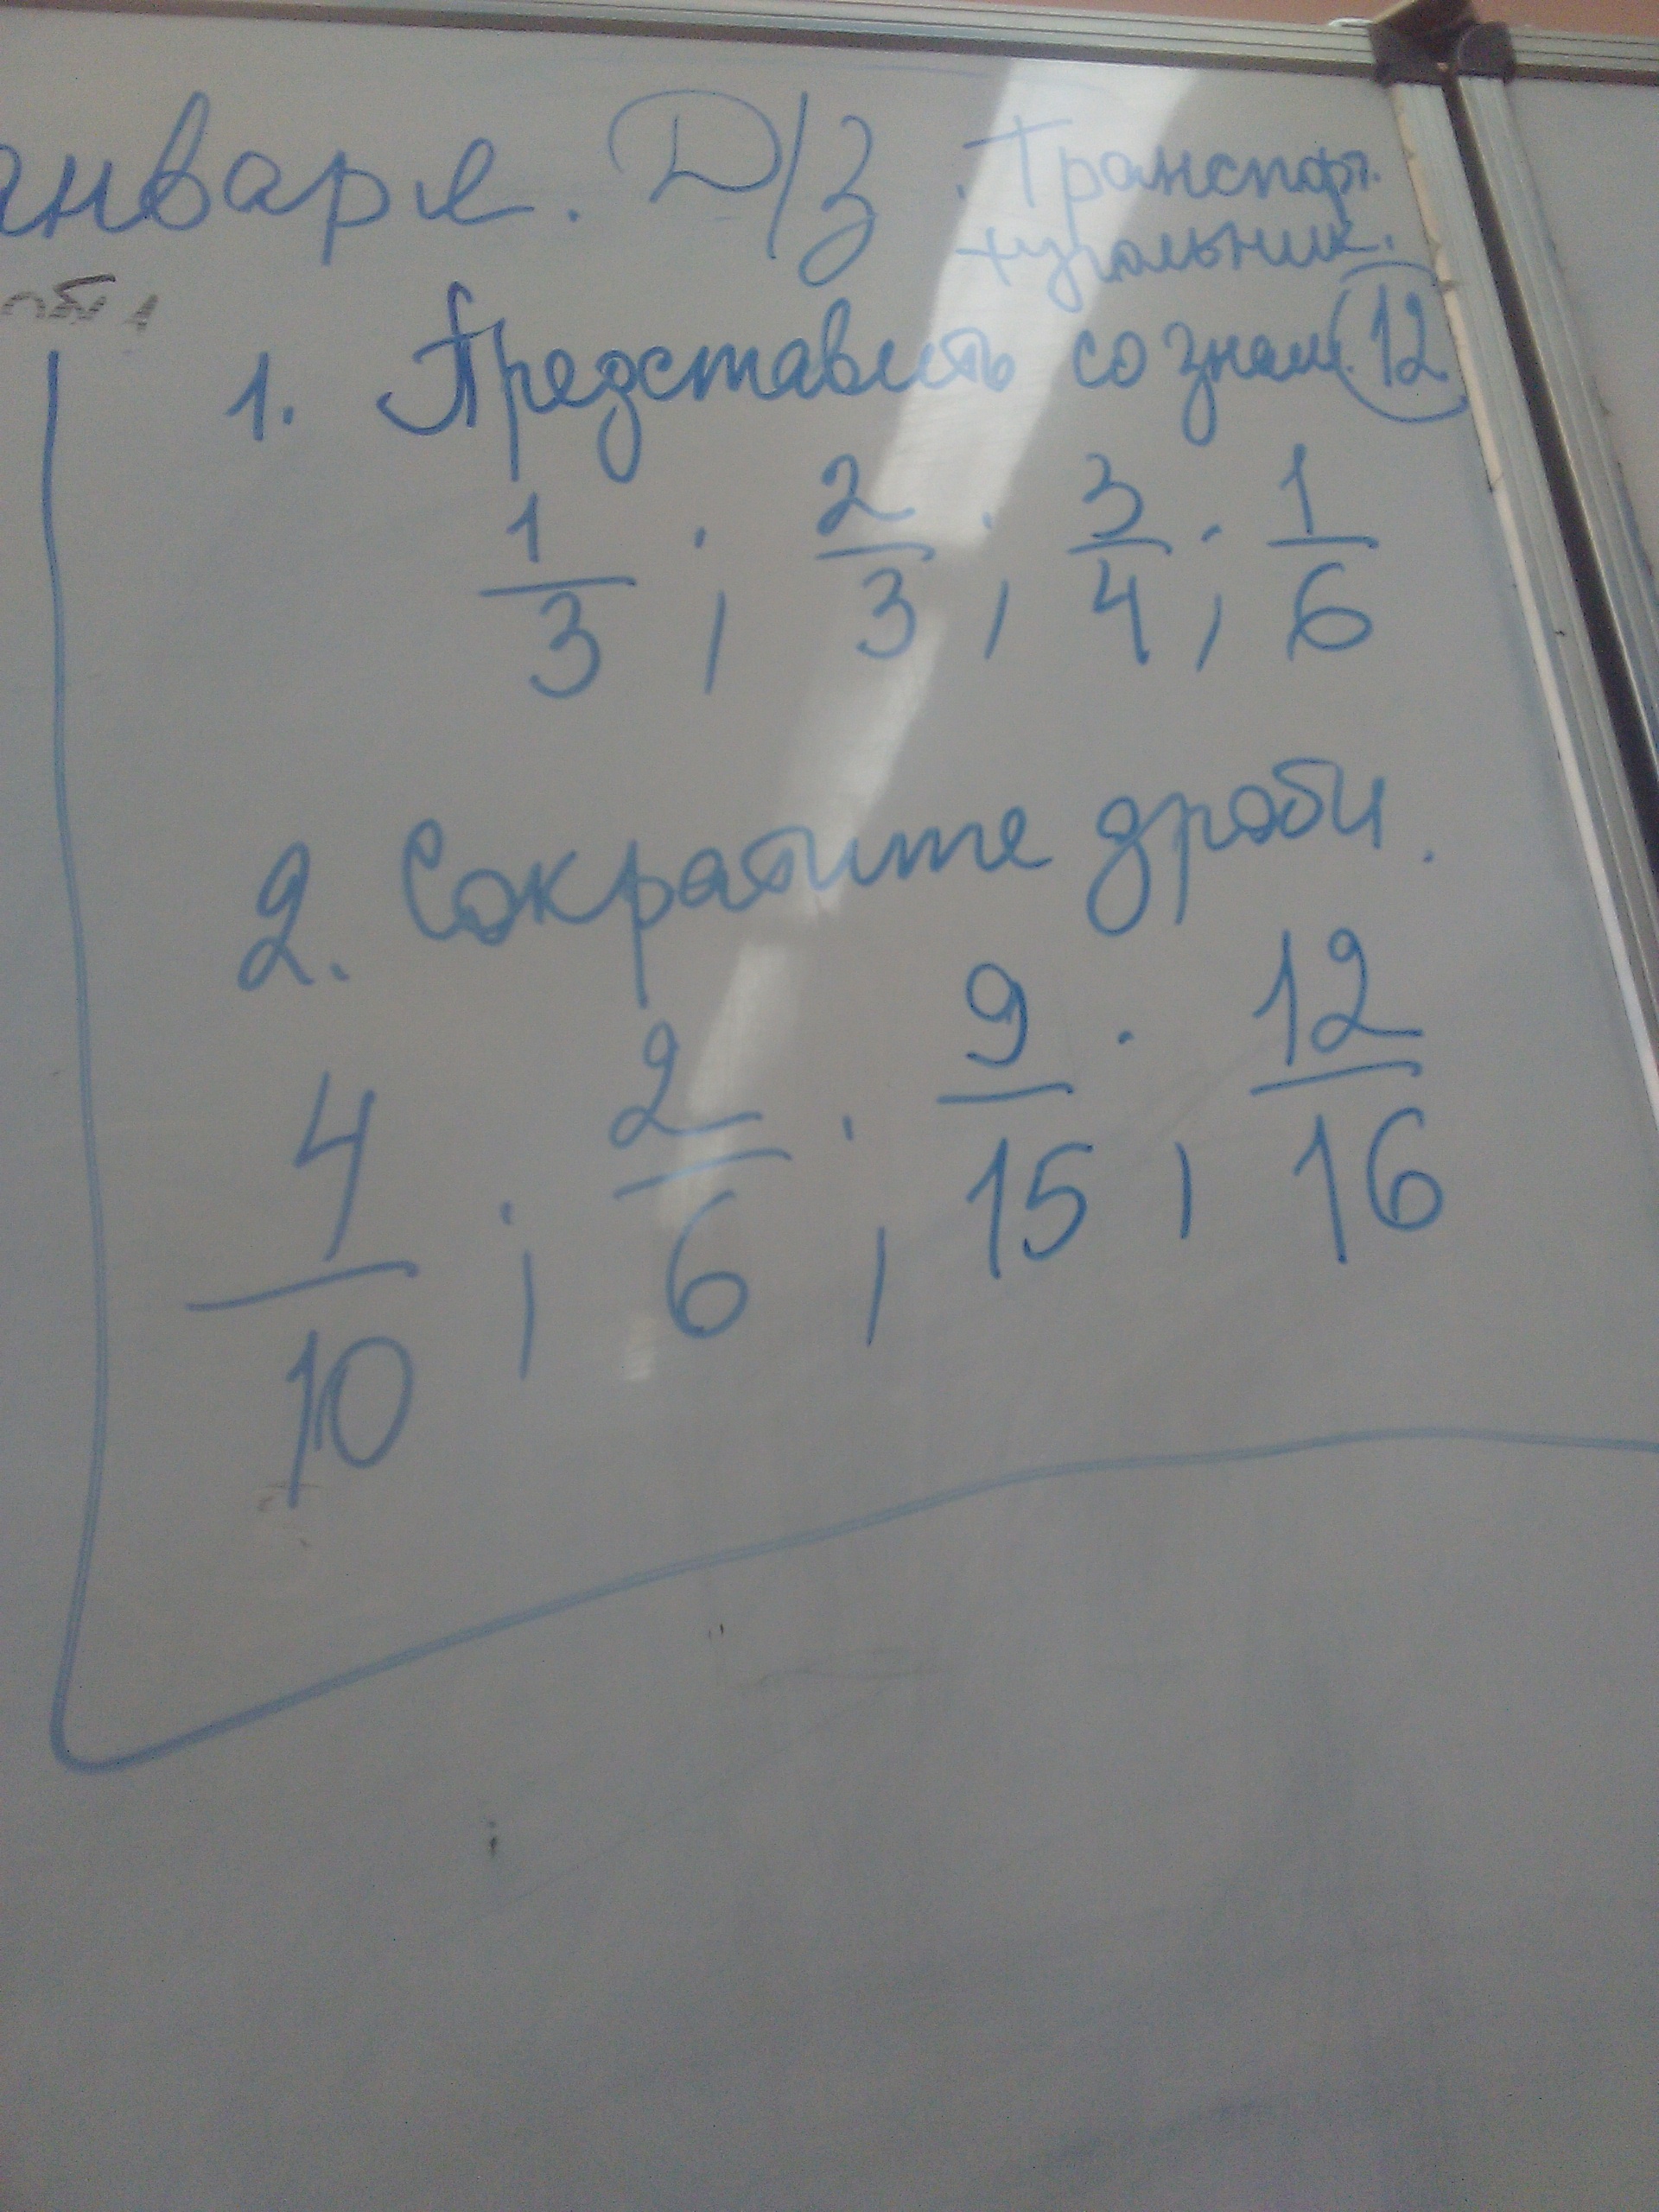 января. Д/З. Транспорт.
+угольник.
1. Представить со знам. 12
1/3 ; 2/3 ; 3/4 ; 1/6
2. Сократите дроби.
4/10 ; 2/6 ; 9/15 ; 12/16